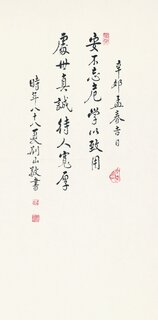 辛卯孟春吉日
安不忘危學以致用
處世真誠待人寬厚
時年八十八叟別山敬書